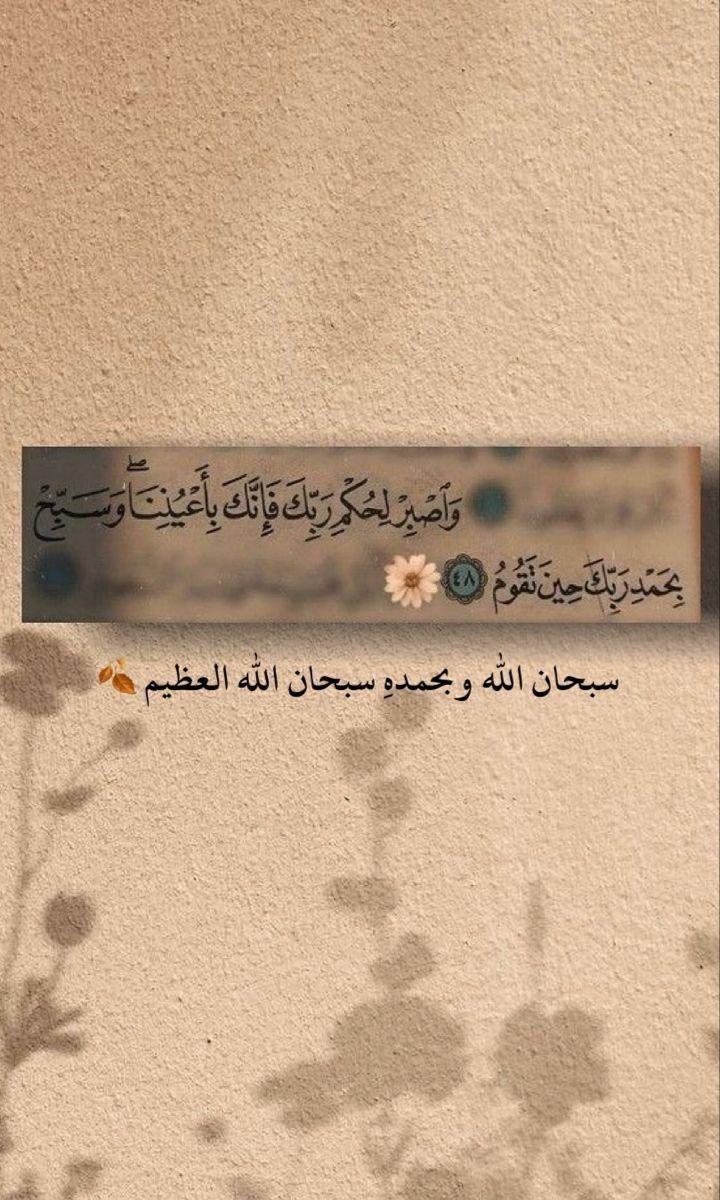 وَٱصْبِرْ لِحُكْمِ رَبِّكَ فَإِنَّكَ بِأَعْيُنِنَا ۖ وَسَبِّحْ
بِحَمْدِ رَبِّكَ حِينَ تَقُومُ ٤٨
سبحان الله وبحمدهِ سبحان الله العظيم